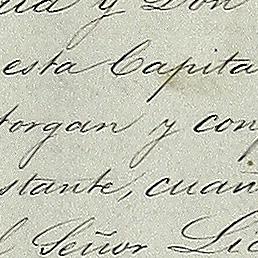 y Don
esta Capita
torgan y con
stante, cuan
Señor Lic